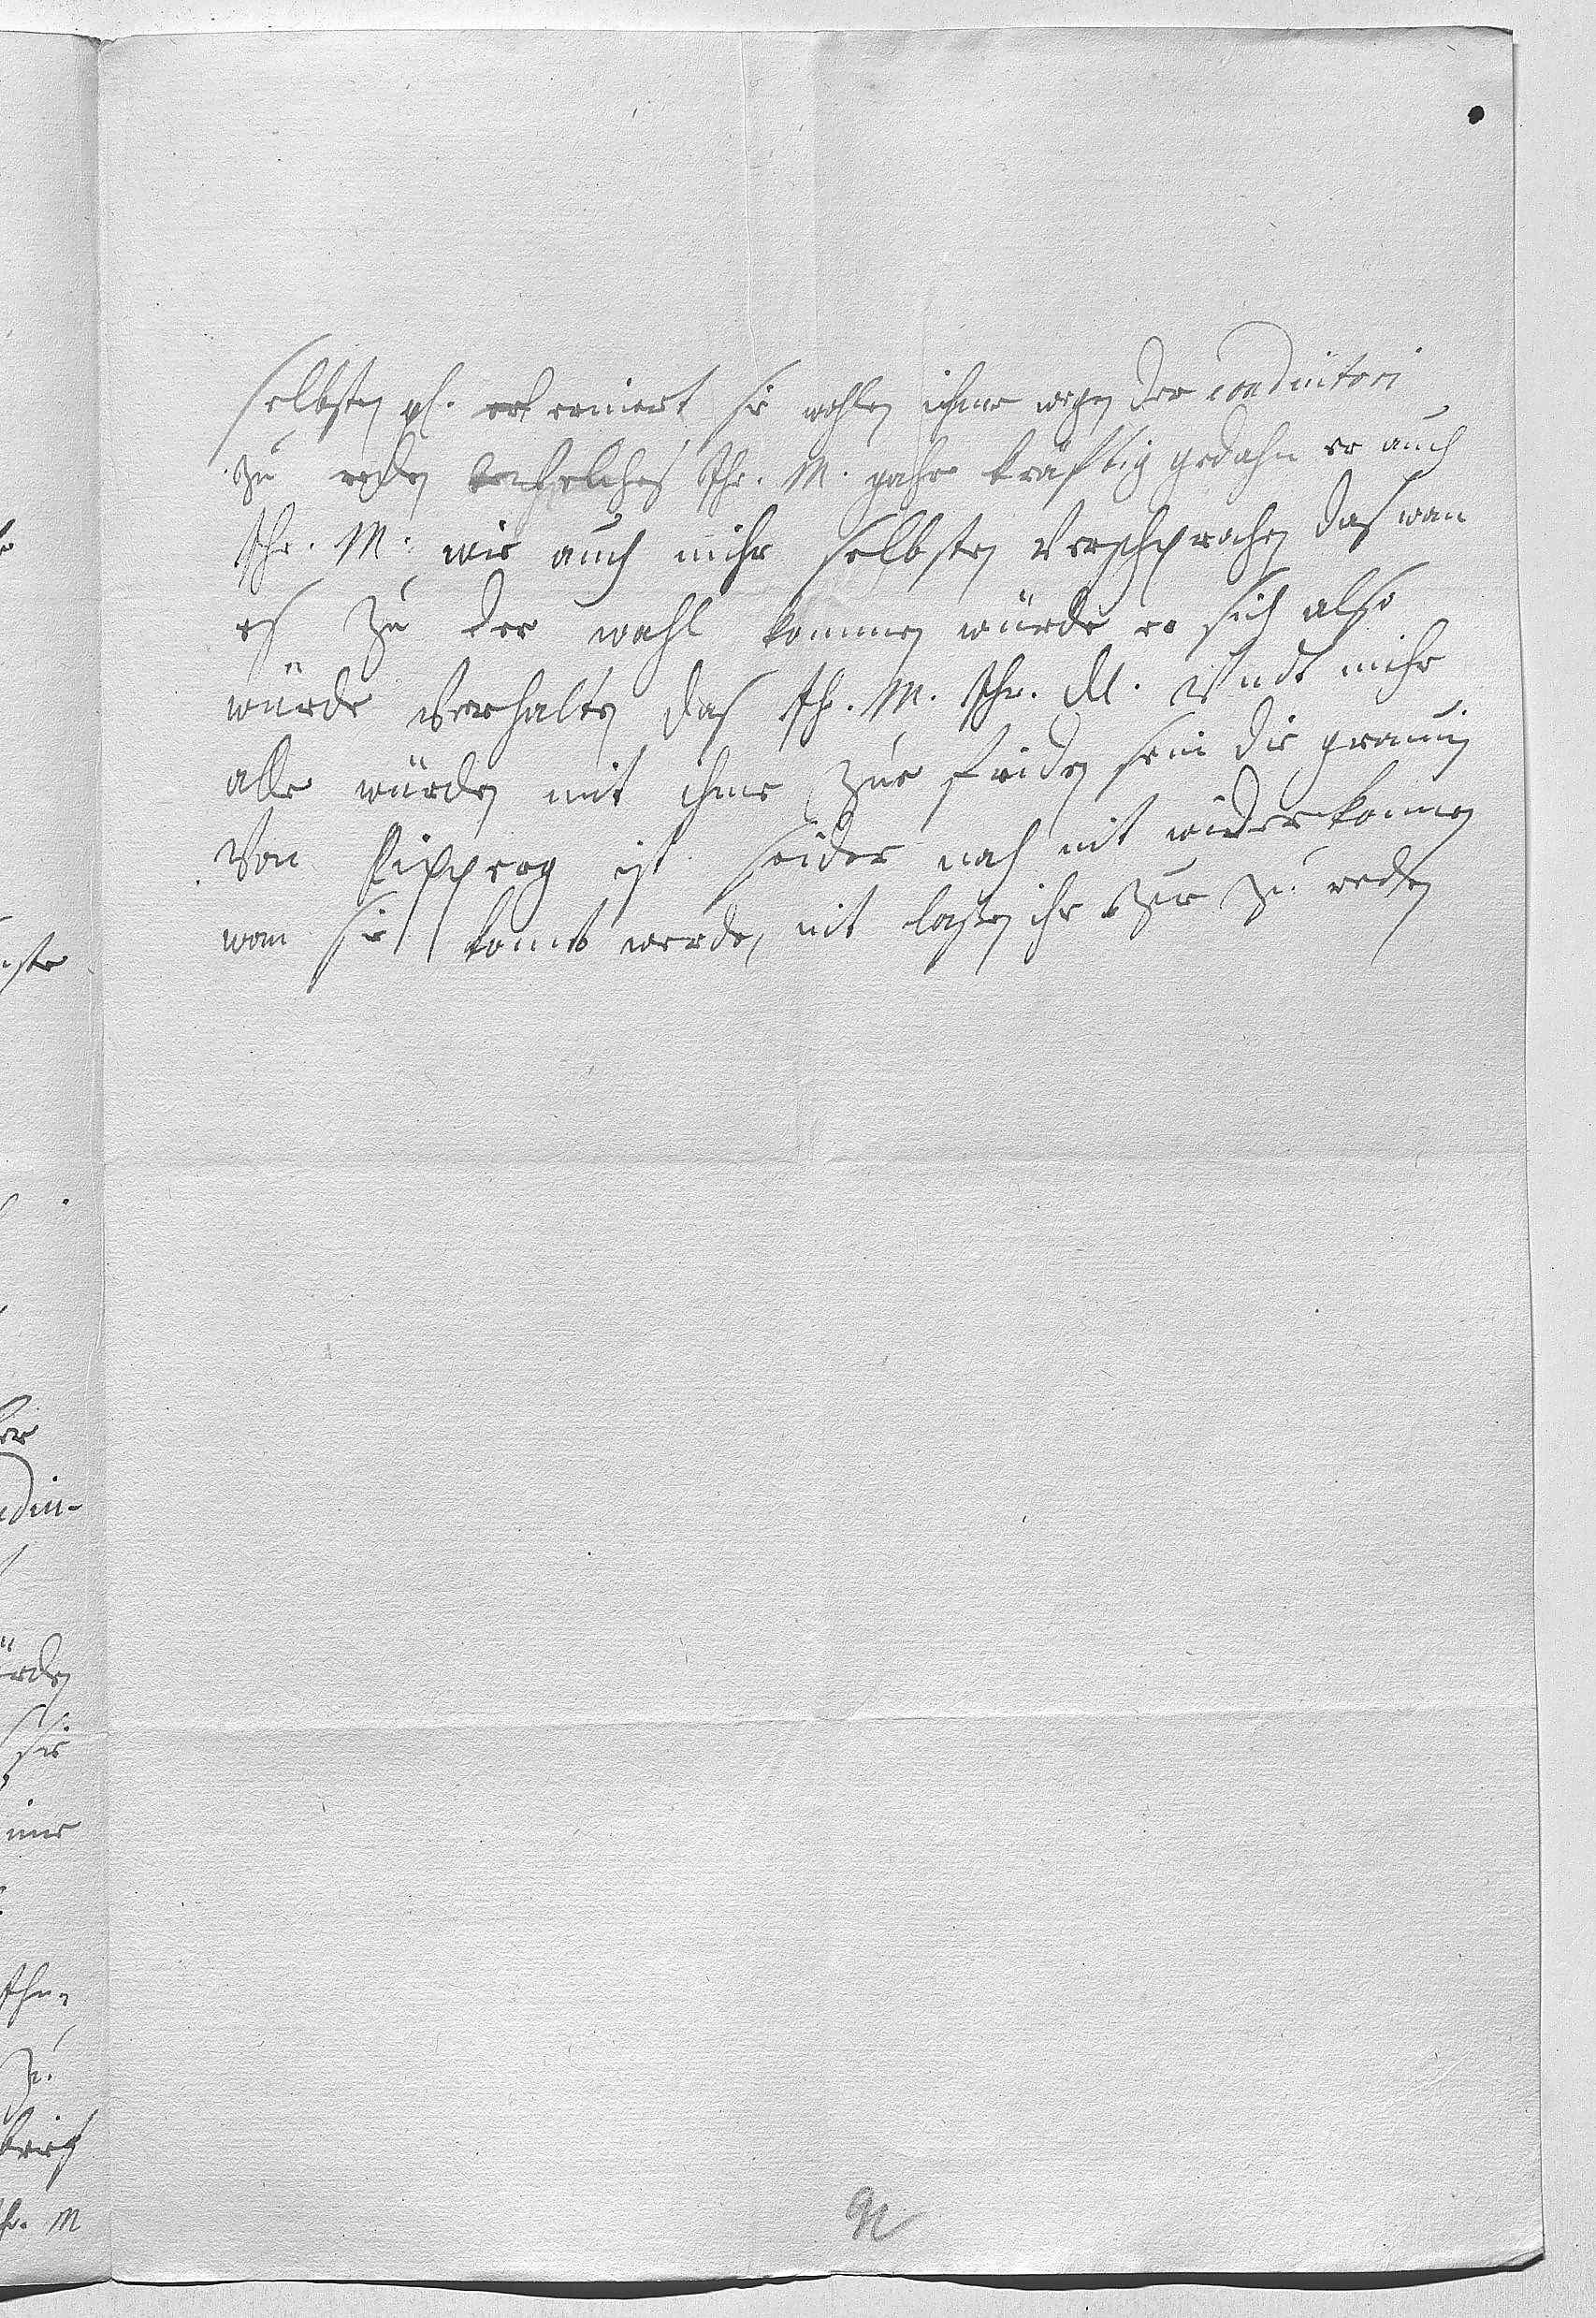 selbsten erinnert sie wohlen ihme wegen der coadiutori
zu reden welches Ihr. M. gahr kräftig gedahn er auch
Ihr. M. wie auch mihr selbsten verschprochen das wan
es zu der wahl kommen würde er sich also
würde verhalten das Ih. M. Ihr. Dl. undt mihr
alle würden mit ihme zue friden sein die grauin
von ist seider noch nit widerkomen
wan sie komt werde, nit lassen ihr zu reden